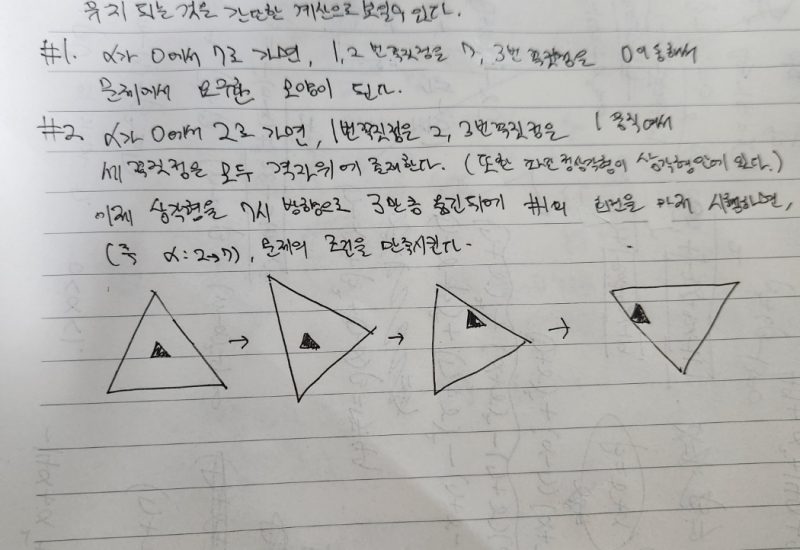 유지 되는 것을 간단한 계산으로 보일 수 있다.
#1. α가 0에서 7로 가면, 1, 2번 꼭짓점을 7, 3번 꼭짓점을 0 이동해서
문제에서 요구한 모양이 된다.
#2. α가 0에서 2로 가면, 1번 꼭짓점을 2, 3번 꼭짓점을 1 움직여서
세 꼭짓점을 모두 격자위에 존재한다. (또한 파란 정삼각형이 삼각형 안에 있다.)
이제 삼각형을 7시 방향으로 3만큼 옮긴 뒤에 #1의 회전을 마저 시행하면,
(즉 α: 2→7), 문제의 조건을 만족시킨다.